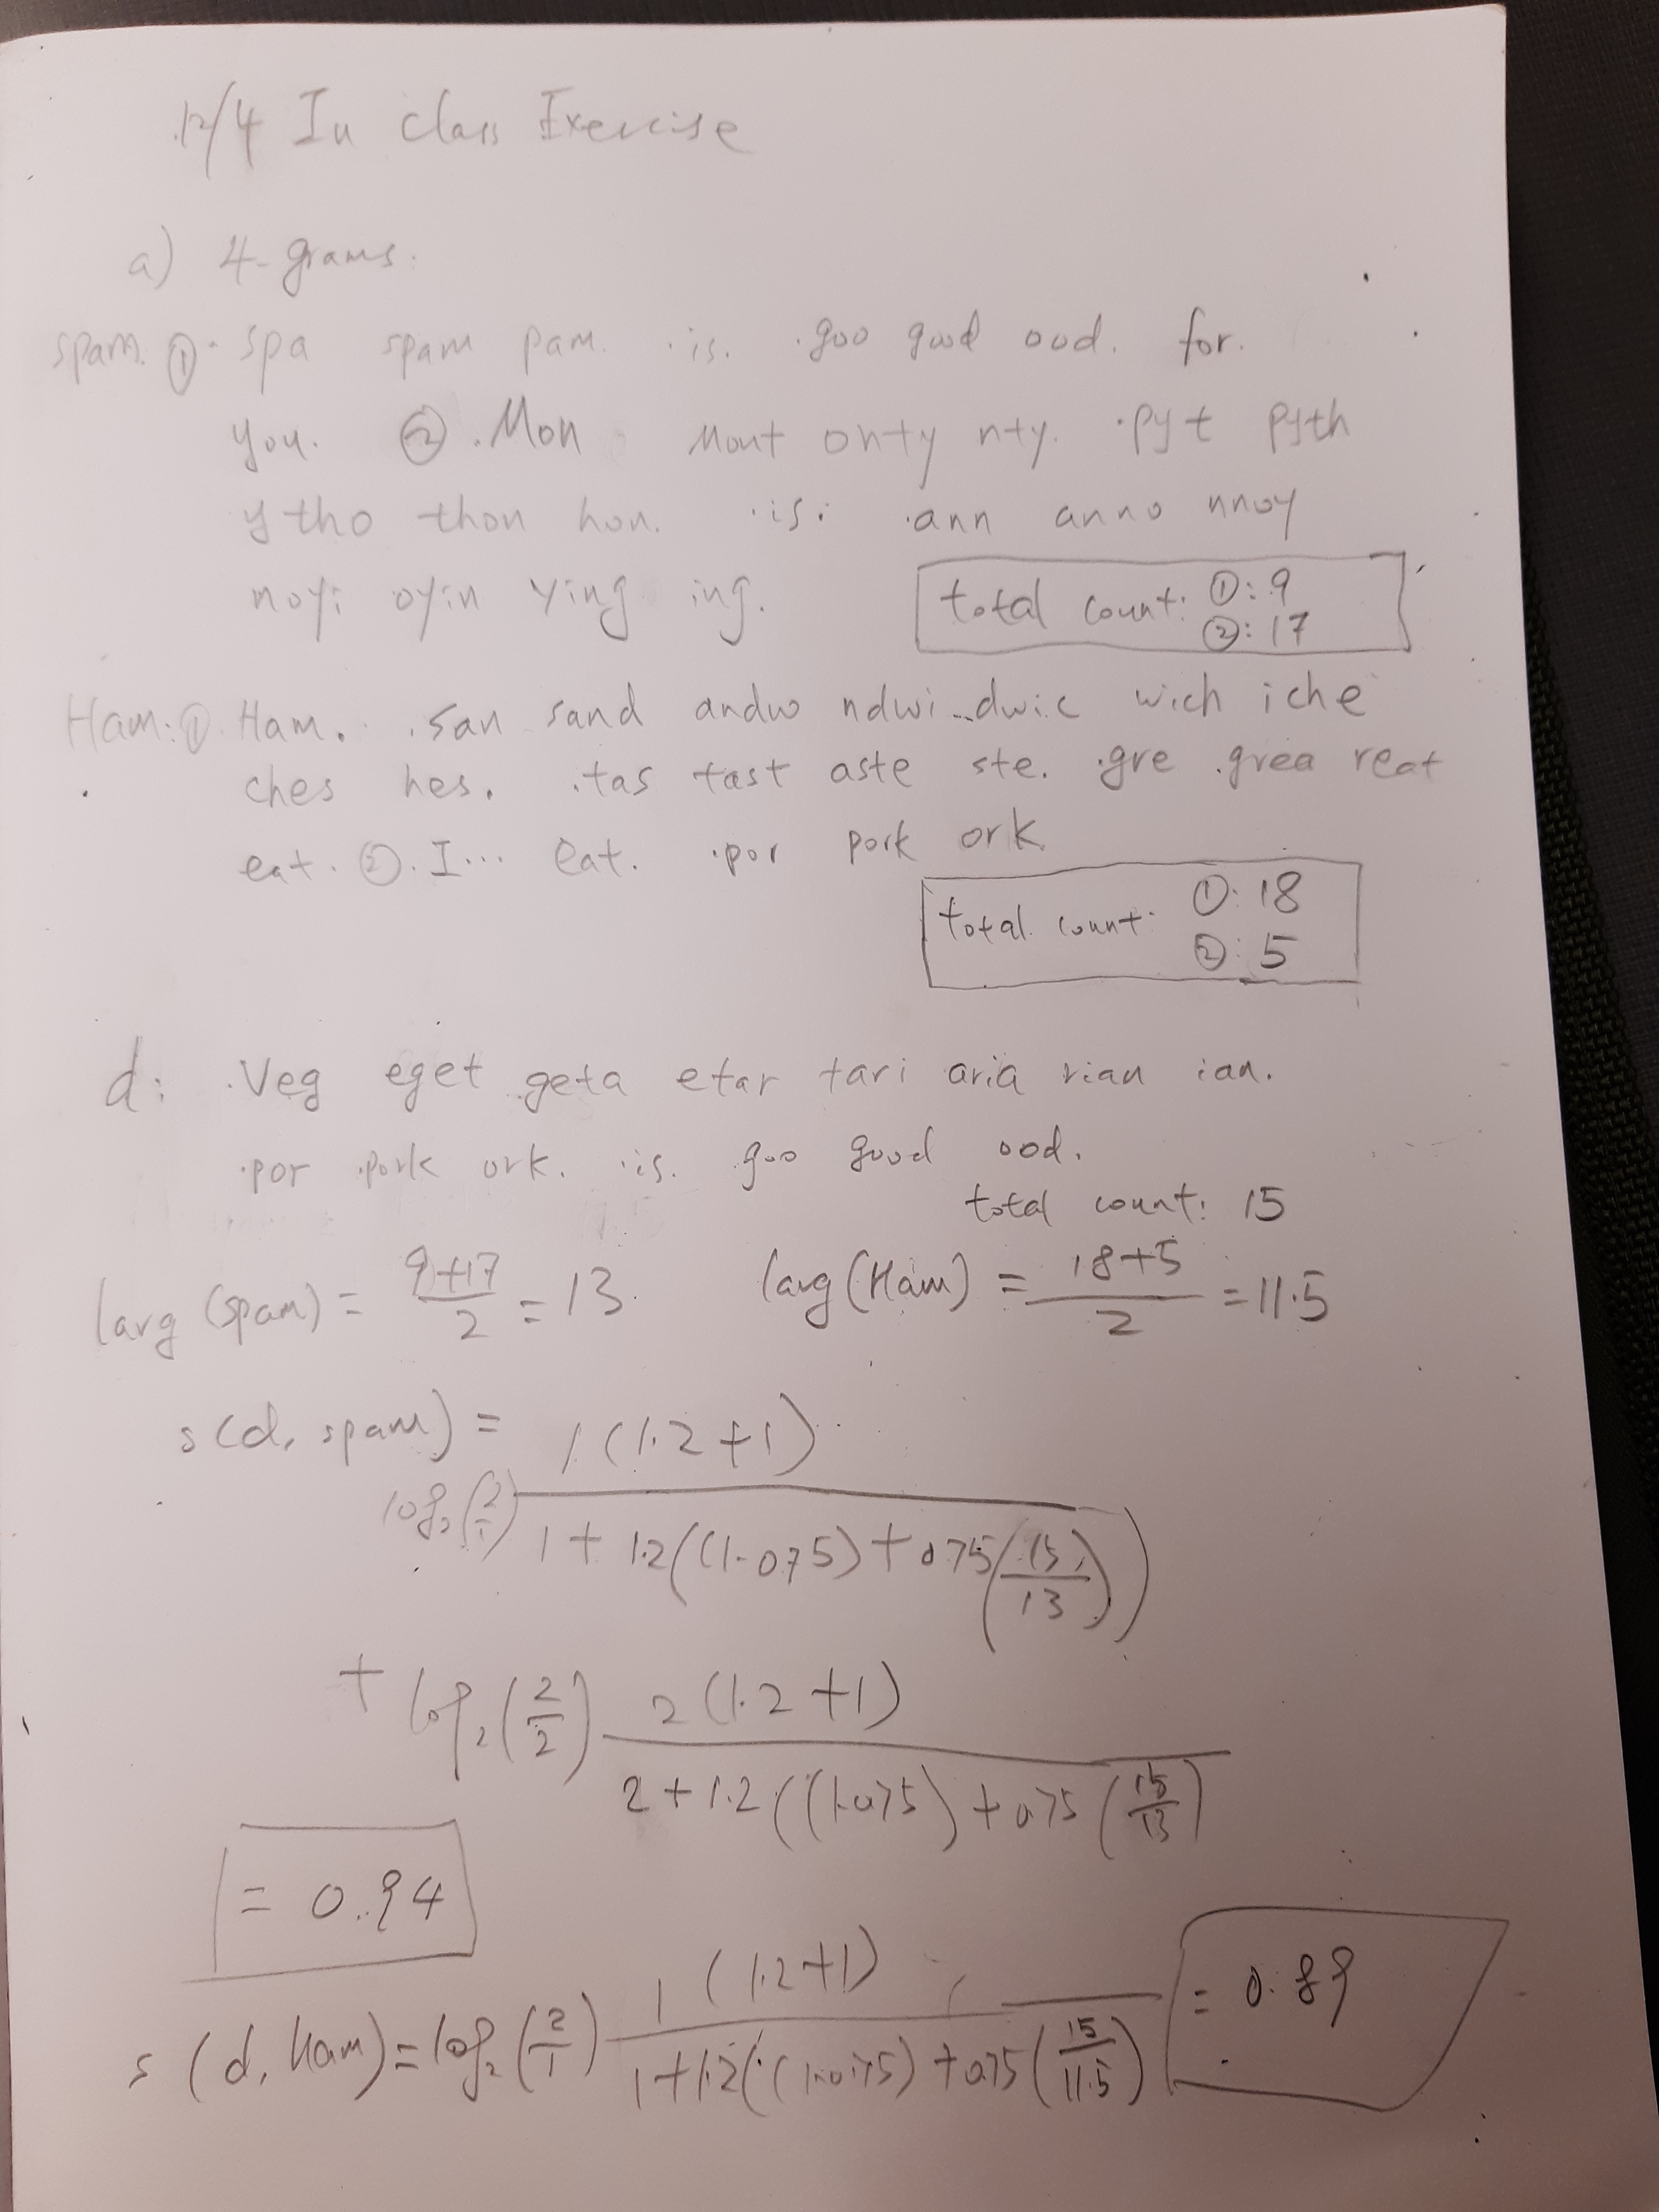 12/4 In class Exercise
a) 4-grams.
spam. ①. ·spa spam pam. ·is. ·goo good ood. for.
you. ② .Mon Mont onty nty. ·pyt pyth
ytho thon hon. ·is. ·ann anno nnoy
noyi oyin ying ing.
total count: ①: 9
②: 17
Ham: ①. Ham. .san sand andw ndwi dwic wich iche
ches hes. .tas tast aste ste. .gre grea reat
eat. ②. I... eat. ·por pork ork.
total count: ①: 18
②: 5
d: .Veg eget geta etar tari aria rian ian.
·por pork ork. ·is. goo good ood.
total count: 15
lavg (spam) = (9+17)/2 = 13. lavg (Ham) = (18+5)/2 = 11.5
s(d, spam) =
log₂(2/1) 1(1.2+1) / 1+1.2((1-0.75)+0.75(15/13))
+ log₂(2/2) 2(1.2+1) / 2+1.2((1-0.75)+0.75(15/13)
= 0.94
s(d, Ham) = log₂(2/1) 1(1.2+1) / 1+1.2((1-0.75)+0.75(15/11.5) = 0.89